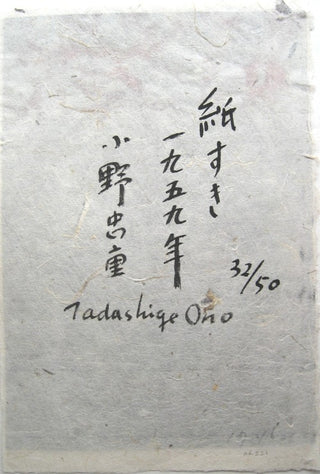 紙すき
一九五九年
小野忠重
32/50
Tadashige Ono